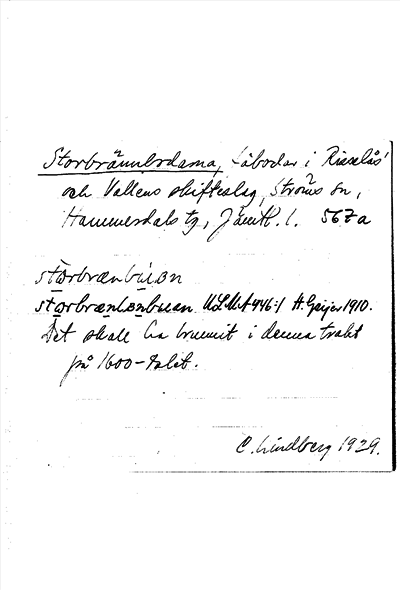 Storbrännbodarna, fäbodar i Risselås
och Vallens skifteslag, Ströms sn,
Hammerdals tg, Jämtl. l. 567a
storbrænbúɩɵn
storbrænbɵnbuan ULMA 446:1 H. Geijer 1910.
Det skall ha brunnit i denna trakt
på 1600-talet.
C. Lindberg 1929.